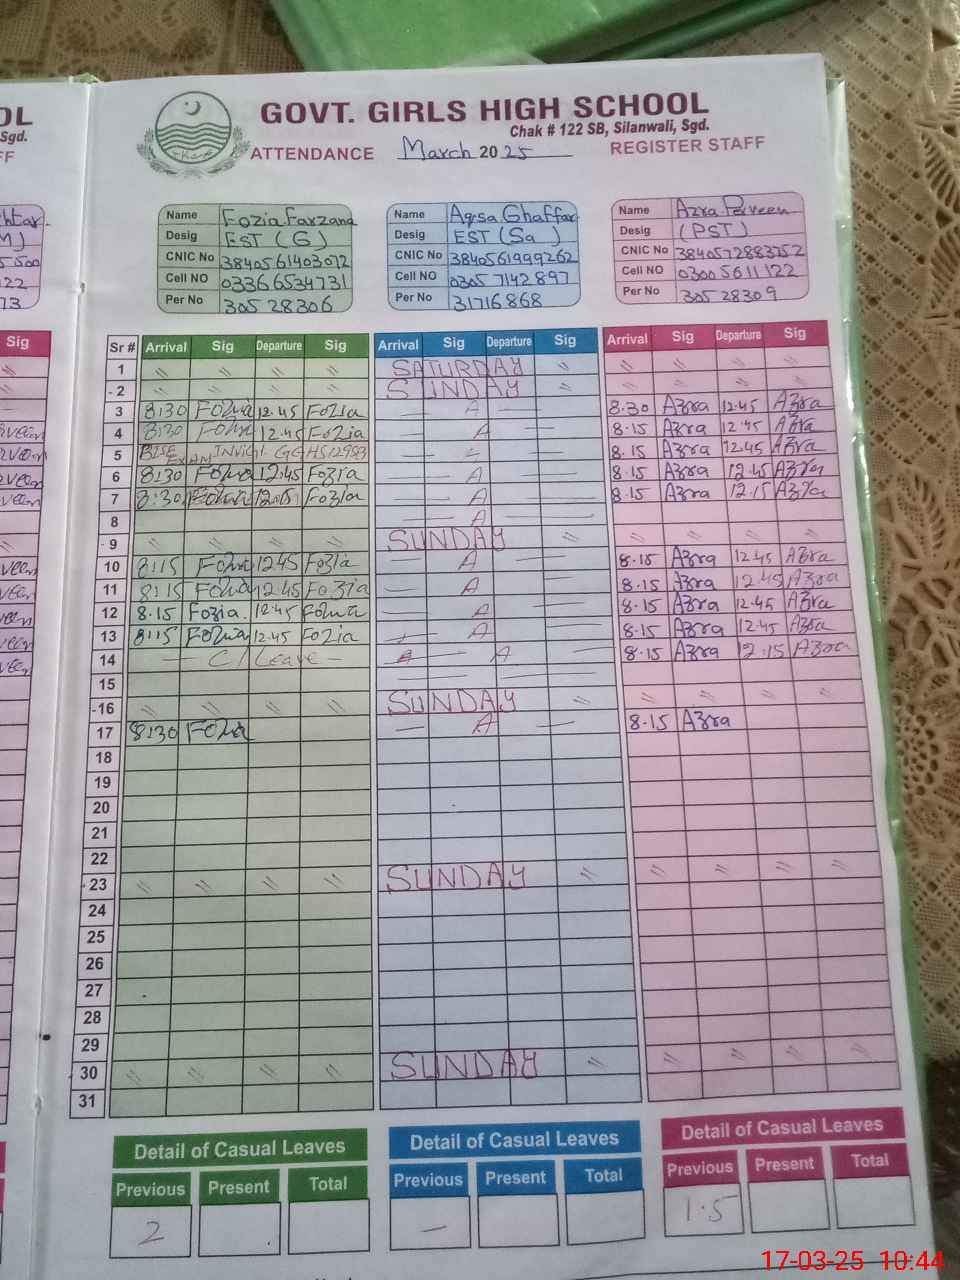 GOVT. GIRLS HIGH SCHOOL
Chak # 122 SB, Silanwali, Sgd.
ATTENDANCE March 2025 REGISTER STAFF
Name Fozia Farzana Name Aqsa Ghaffar Name Azra Perveen
Desig EST (G) Desig EST (Sa) Desig (PST)
CNIC No 3840561403072 CNIC No 3840561999262 CNIC No 3840572883752
Cell NO 03366534731 Cell NO 03057142897 Cell NO 03005611122
Per No 30528306 Per No 31716868 Per No 30528309
Sr # Arrival Sig Departure Sig Arrival Sig Departure Sig Arrival Sig Departure Sig
1 〃 〃 〃 〃 SATURDAY 〃 〃 〃 〃 〃
2 〃 〃 〃 〃 SUNDAY 〃 〃 〃 〃 〃
3 8:30 Fozia 12.45 Fozia — A — 8.30 Azra 12.45 Azra
4 8:30 Fozia 12.45 Fozia — A — 8.15 Azra 12.45 Azra
5 BISE EXAM INVIGI. GGHS — — 8.15 Azra 12.45 Azra
6 8:30 Fozia 12.45 Fozia — A — 8.15 Azra 12.45 Azra
7 8:30 Fozia 12.15 Fozia — A — 8.15 Azra 12.15 Azra
8 — A —
9 〃 〃 〃 〃 SUNDAY 〃 〃 〃 〃
10 8:15 Fozia 12.45 Fozia — A — 8.15 Azra 12.45 Azra
11 8:15 Fozia 12.45 Fozia — A — 8.15 Azra 12.45 Azra
12 8.15 Fozia. 12.45 Fozia — A — 8.15 Azra 12.45 Azra
13 8:15 Fozia 12.45 Fozia — A — 8.15 Azra 12.45 Azra
14 — C/Leave — A — 8.15 Azra 12.15 Azra
15 — — —
16 〃 〃 〃 〃 SUNDAY 〃 〃 〃 〃 〃
17 8:30 Fozia — A — 8.15 Azra
18
19
20
21
22
23 〃 〃 〃 〃 SUNDAY 〃 〃 〃 〃 〃
24
25
26
27
28
29
30 〃 〃 〃 〃 SUNDAY 〃 〃 〃 〃 〃
31
Detail of Casual Leaves Detail of Casual Leaves Detail of Casual Leaves
Previous Present Total Previous Present Total Previous Present Total
2 — 1.5
17-03-25 10:44